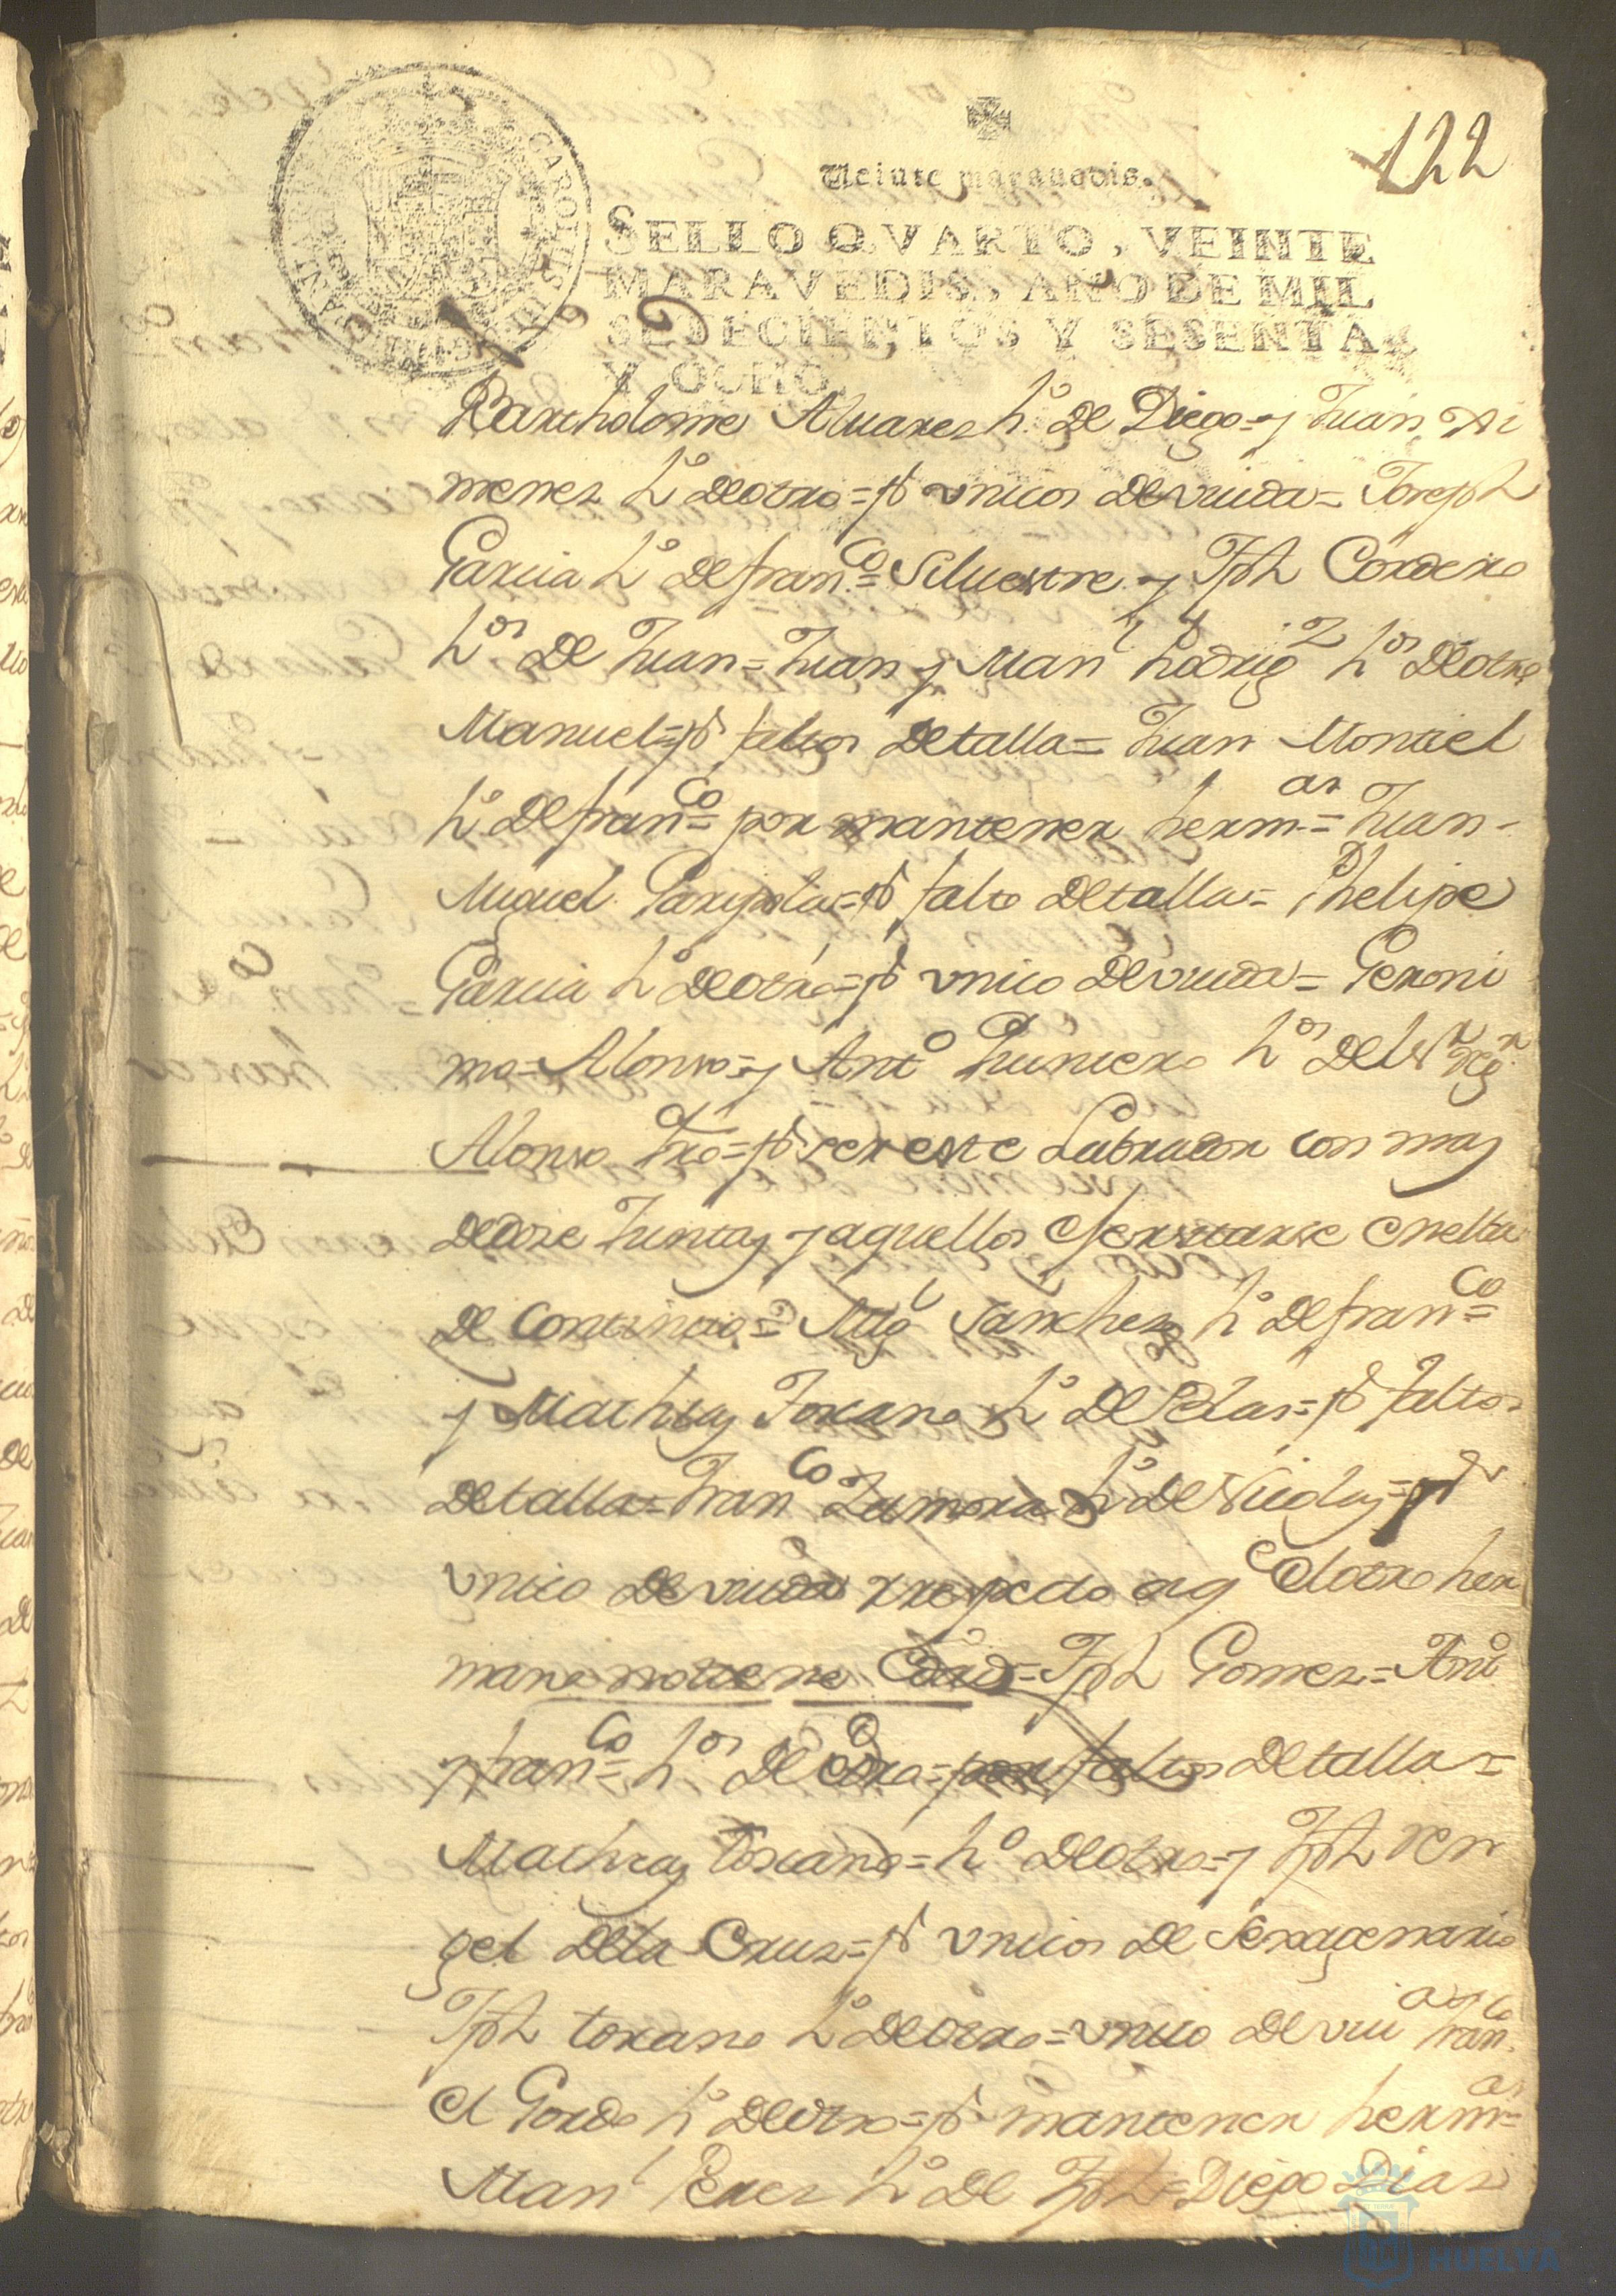 122
Veinte maravedis.
SELLO QVARTO, VEINTE
MARAVEDIS, AÑO DE MIL
SETECIENTOS Y SESENTA
Y OCHO.
CAROLUS III
Bartholome Alvarez h.º de Diego = y Juan Xi
menez h.º de otro = pr unicos de viuda = Joseph
Garcia h.º de fran.co = Silvestre y Jph Cordero
h.os de Juan = Juan y Man.l Rodrig.z h.os de otro
Manuel = pr faltos de talla = Juan Montiel
h.º de fran.co = por mantener herm.as = Juan
Miguel = pr falto de talla = Phelipe
Garcia h.º de otro = pr unico de viuda = Geroni
mo = Alonso = y Ant.º Quintero h.os del
Alonso = pr ser este Labrador con mas
de dose Juntas y aquellos exersitarse en elta
de Continuo = Mig.l Sanchez h.º de fran.co =
y Mathias Toscano h.º de Blas = pr faltos
de talla = Fran.co Zamora h.º de Nicolas = pr
unico de viuda respecto a q.e el otro her
mano no tiene = Jph Gomez = Ant.º
y fran.co = h.os de otro = por faltos de talla =
Mathias Toscano = h.º de otro = y Jph Ren
gel de la Cruz = pr unicos de Sexagenario
Jph toscano h.º de otro = unico de viu.a = Fran.co
el Gordo h.º de otro = pr mantener herm.as =
Man.l Perez h.º de Jph = Diego Dias
HUELVA